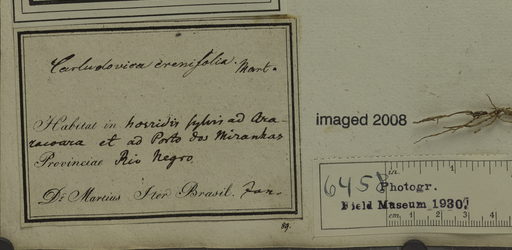 Carludovica crenifolia. Mart.
Habitat in horridis sylvis ad Ara-
racoara et ad Porto dos Mirankas
Provinciae Rio Negro.
Dr Martius Iter Brasil. Jan.
89.
imaged 2008
in. 1 2
6458
Photogr.
Field Museum 1930.
cm. 1 2 3 4